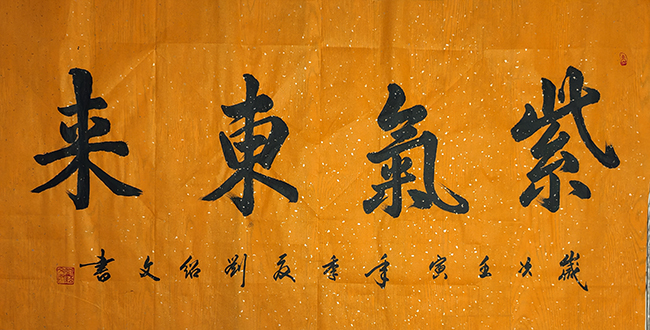 紫氣東来
歲次壬寅年季夏劉紹文書